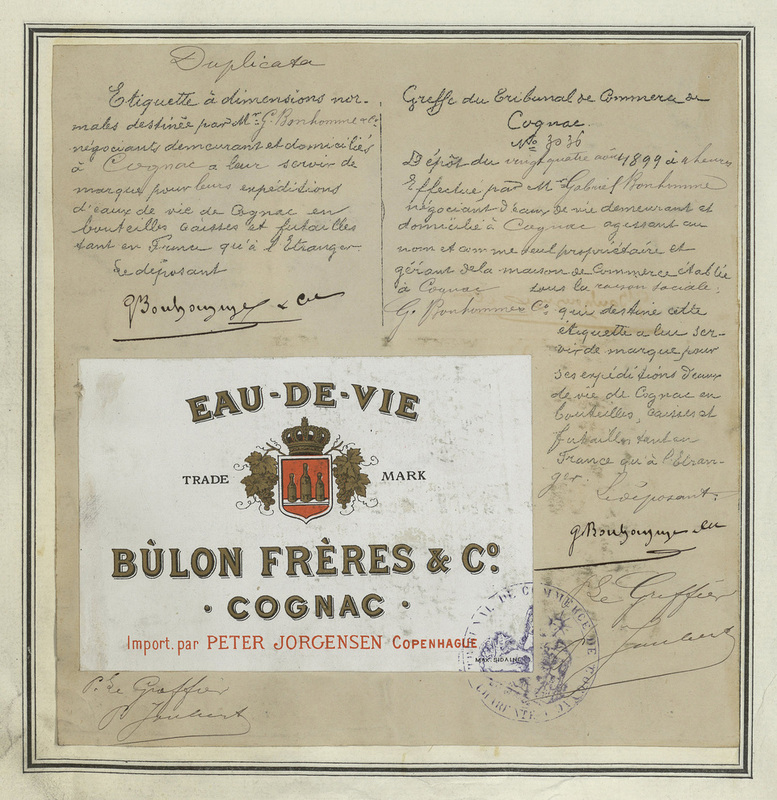 Duplicata
Etiquette à dimensions nor-
males destinée par Mr. G. Bonhomme & Cie
négociants demeurant et domiciliés
à Cognac a leur servir de
marque pour leurs expéditions
d'eaux de vie de Cognac en
bouteilles caisses et futailles
tant en France qu'à l'Etranger
Le déposant
G Bonhomme & Cie
Greffe du Tribunal de Commerce de
Cognac
No 3036
Dépôt du vingt quatre août 1899 à 4 heures
Effectué par Mr Gabriel Bonhomme
négociant d'eaux de vie demeurant et
domicilié à Cognac agissant au
nom et comme seul propriétaire et
gérant de la maison de Commerce établie
à Cognac sous la raison sociale:
G. Bonhomme & Co. qui destine cette
étiquette a leur ser-
vir de marque pour
ses expéditions d'eaux
de vie de Cognac en
bouteilles, caisses et
futailles tant en
France qu'à l'Etran-
ger.
Le déposant.
G Bonhomme & Cie
EAU-DE-VIE
TRADE MARK
BÙLON FRÈRES & Co.
· COGNAC ·
Import. par PETER JORGENSEN COPENHAGUE
TRIBUNAL DE COMMERCE DE COGNAC
CHARENTE
Le Greffier
Joubert
P. Le Greffier
P Joubert